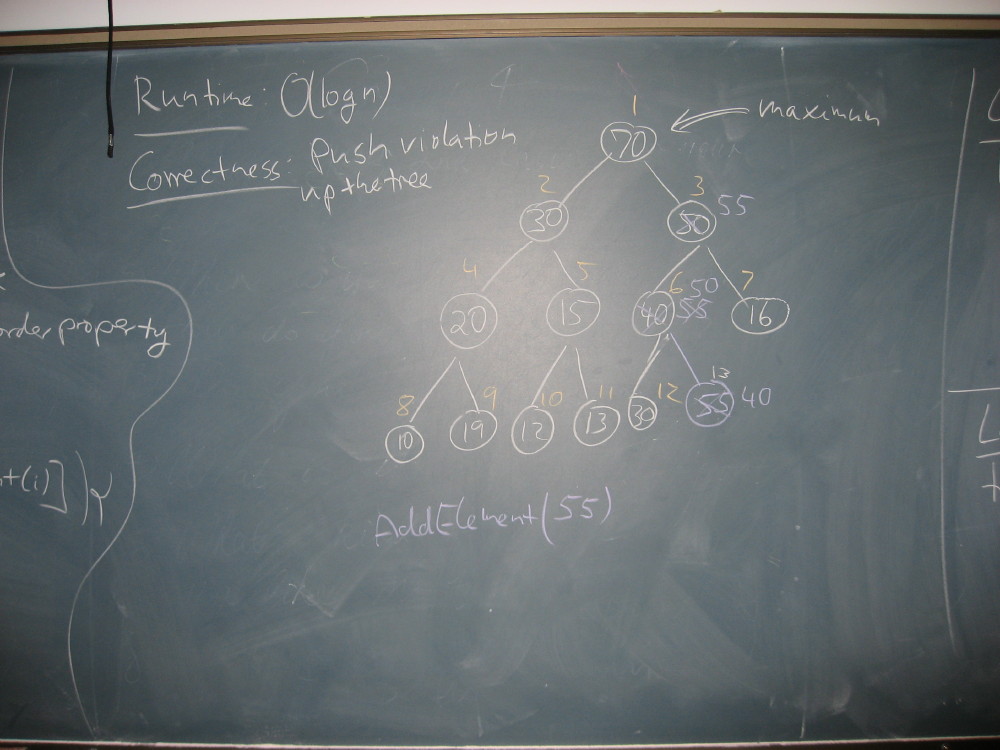 Runtime: O(log n)
Correctness: push violation
up the tree
1
70
maximum
2
30
3
50
55
4
20
5
15
6
50
40
55
7
16
8
10
9
19
10
12
11
13
12
30
13
55
40
AddElement(55)
order property
t(i)])